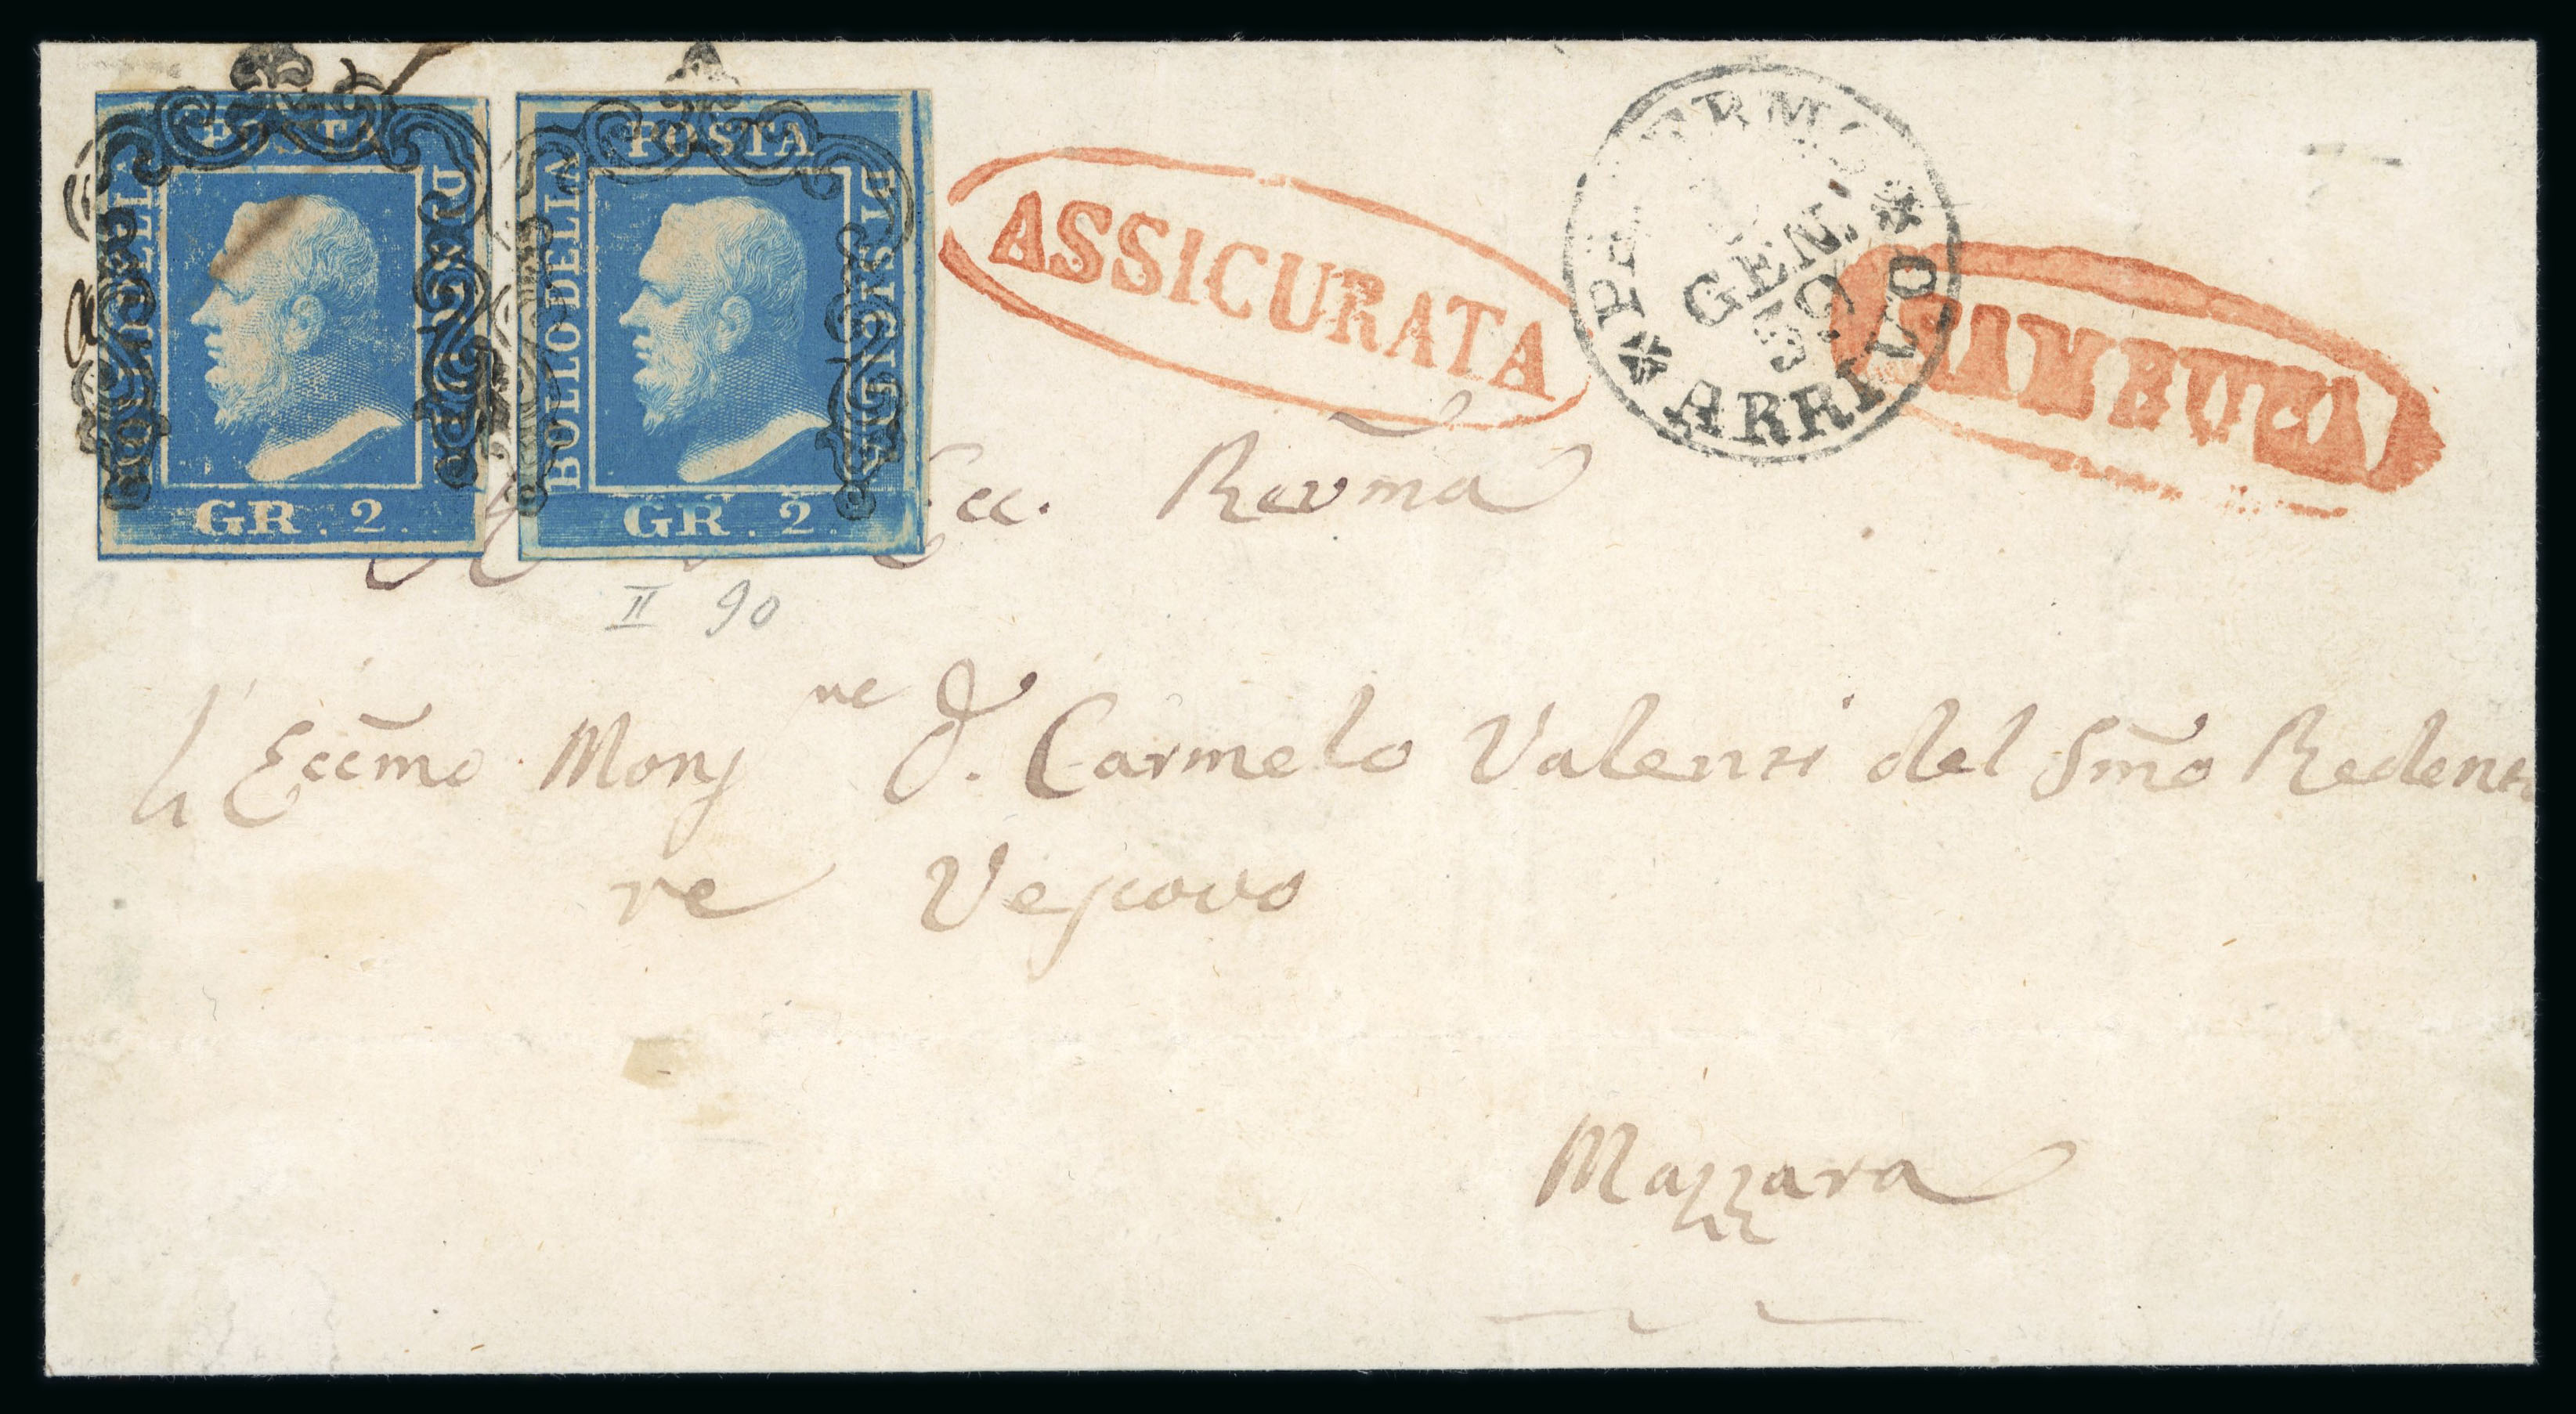 POSTA
BOLLO DELLA
DI SICILIA
GR. 2.
POSTA
BOLLO DELLA
DI SICILIA
GR. 2.
ASSICURATA
PALERMO
GEN.
59
ARRIVO
SAMBUCA
Ecc. Revma
II 90
L' Eccmo Monsne D. Carmelo Valensi del Smo Redento
re Vescovo
Mazzara